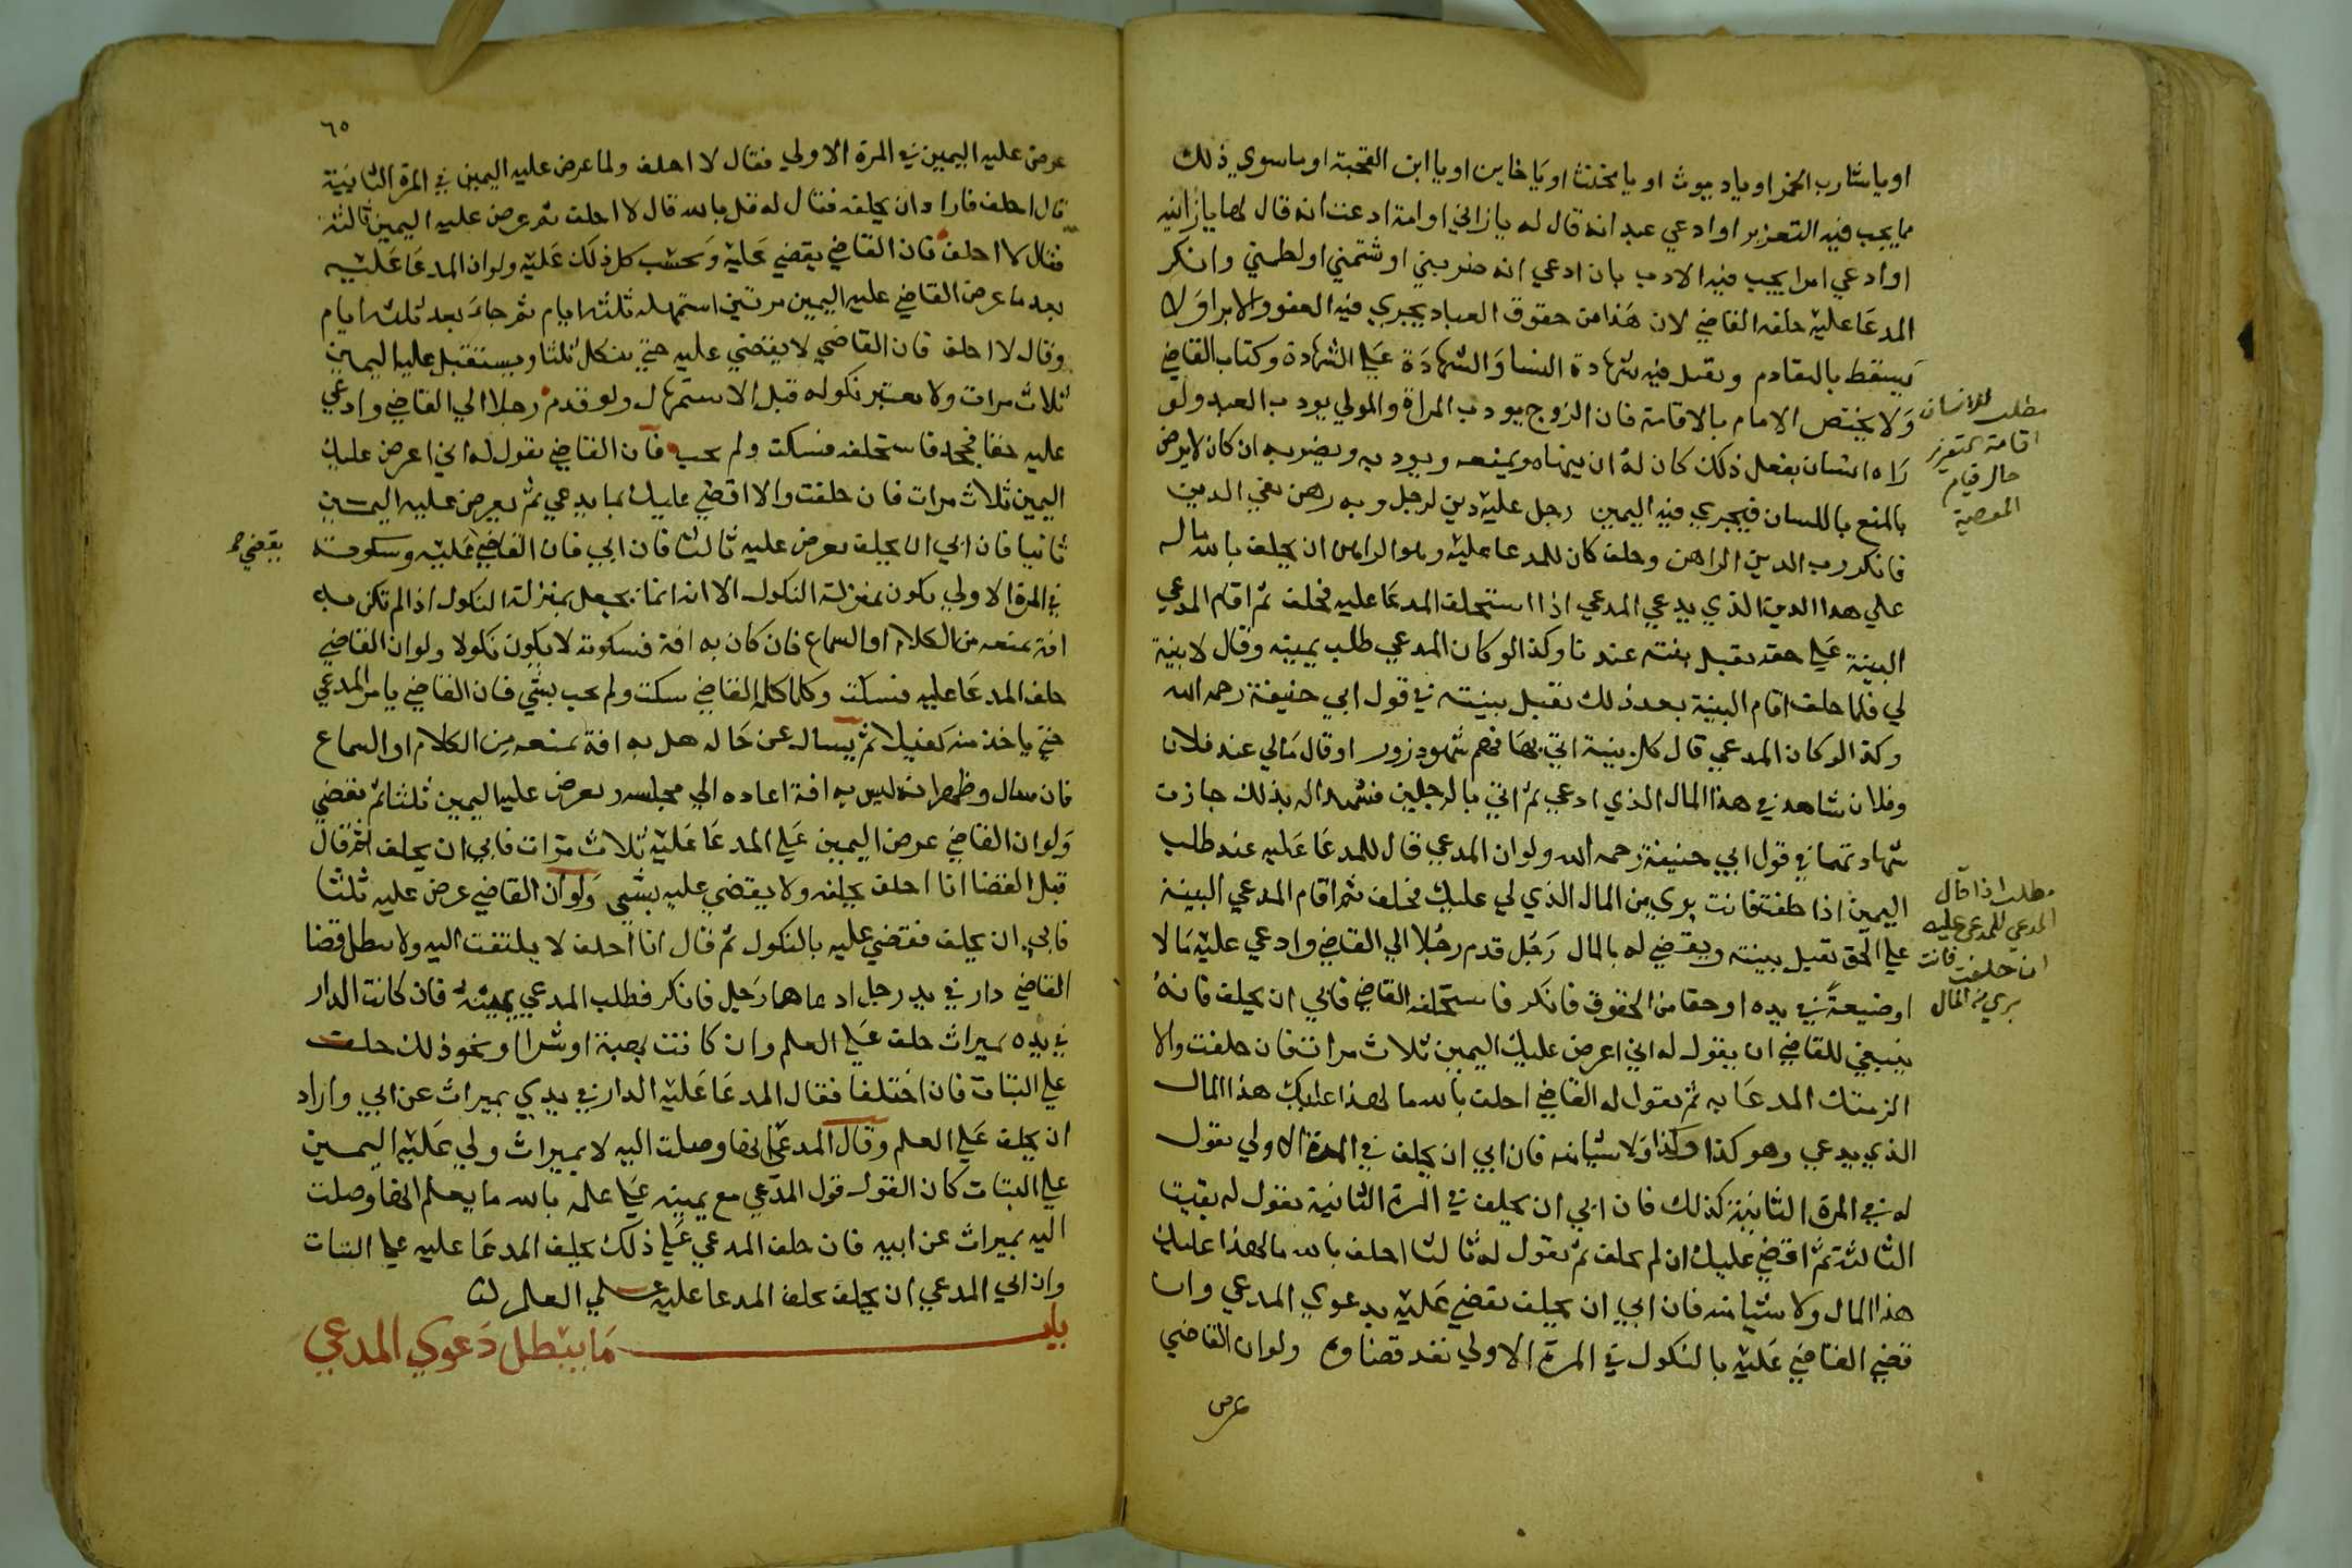 او يا شارب الخمر او يا ديوث او يا مخنث او يا خاين او يا ابن القحبة او ما سوي ذلك
مما يجب فيه التعزير او ادعي عبد انه قال له يا زاني او امة ادعت انه قال لها يا زانيه
او ادعي امرا يجب فيه الادب بان ادعي انه ضربني او شتمني او لطمني وانكر
المدعا عليه حلفه القاضي لان هذا من حقوق العباد يجري فيه العفو والابرا ولا
يسقط بالتقادم وتقبل فيه شهادة النسا والشهادة علي الشهادة وكتاب القاضي
ولا يختص الامام بالاقامة فان الزوج يودب المراة والمولي يودب العبد ولو
راه انسان يفعل ذلك كان له ان ينهاه ويمنعه ويودبه ويضربه ان كان لا يرضي
بالمنع باللسان فيجري فيه اليمين رجل عليه دين لرجل وبه رهن يفي الدين
فانكر رب الدين الراهن وحلف كان للمدعا عليه وهو الراهن ان يحلف بالله ما له
علي هذا الدين الذي يدعي المدعي اذا استحلف المدعا عليه فحلف ثم اقام المدعي
البينة علي حقه تقبل بينته عندنا وكذا لو كان المدعي طلب يمينه وقال لا بينة
لي فلما حلف اقام البينة بعد ذلك تقبل بينته في قول ابي حنيفة رحمه الله
وكذا لو كان المدعي قال كل بينة اتي بها فهم شهود زور او قال مالي عند فلان
وفلان شاهد في هذا المال الذي ادعي ثم اتي بالرجلين فشهدا له بذلك جازت
شهادتهما في قول ابي حنيفة رحمه الله ولو ان المدعي قال للمدعا عليه عند طلب
اليمين اذا حلفت فانت بري من المال الذي لي عليك فحلف ثم اقام المدعي البينة
علي الحق تقبل بينته ويقضي له بالمال رجل قدم رجلا الي القاضي وادعي عليه مالا
او ضيعة في يده او حقا من الحقوق فانكر فاستحلفه القاضي فابي ان يحلف فانه
ينبغي للقاضي ان يقول له اني اعرض عليك اليمين ثلاث مرات فان حلفت والا
الزمتك المدعا به ثم يقول له القاضي احلف بالله ما لهذا عليك هذا المال
الذي يدعي وهو كذا وكذا ولا شيا منه فان ابي ان يحلف في المرة الاولي يقول
له في المرة الثانية كذلك فان ابي ان يحلف في المرة الثانية يقول له بقيت
الثالثة ثم اقضي عليك ان لم تحلف ثم يقول له ثالثا احلف بالله ما لهذا عليك
هذا المال ولا شيا منه فان ابي ان يحلف يقضي عليه بدعوي المدعي وان
قضي القاضي عليه بالنكول في المرة الاولي نفذ قضاوه ولو ان القاضي
عرض
مطلب للانسان
اقامة التعزير
حال قيام
المعصية
مطلب اذا قال
المدعي للمدعي عليه
ان حلفت فانت
بري من المال
٦٥
عرض عليه اليمين في المرة الاولي فقال لا احلف ولما عرض عليه اليمين في المرة الثانية
قال احلف فاراد ان يحلفه فقال له قل بالله قال لا احلف ثم عرض عليه اليمين ثالثة
فقال لا احلف فان القاضي يقضي عليه ويحتسب كل ذلك عليه ولو ان المدعا عليه
بعد ما عرض القاضي عليه اليمين مرتين استمهله ثلثة ايام ثم جاء بعد ثلثة ايام
وقال لا احلف فان القاضي لا يقضي عليه حتي ينكل ثلثا ويستقبل عليه اليمين
ثلاث مرات ولا يعتبر نكوله قبل الاستمهال ولو قدم رجلا الي القاضي وادعي
عليه حقا فجحد فاستحلفه فسكت ولم يجب فان القاضي يقول له اني اعرض عليك
اليمين ثلاث مرات فان حلفت والا اقضي عليك بما يدعي ثم يعرض عليه اليمين
ثانيا فان ابي ان يحلف يعرض عليه ثالثا فان ابي فان القاضي عليه وسكوته
يقضي صح
في المرة الاولي يكون بمنزلة النكول الا انه انما يجعل بمنزلة النكول اذا لم تكن به
افة تمنعه من الكلام او السماع فان كان به افة فسكوته لا يكون نكولا ولو ان القاضي
حلف المدعا عليه فسكت وكلما كلمه القاضي سكت ولم يجب بشي فان القاضي يامر المدعي
حتي ياخذ منه كفيلا ثم يسال عن حاله هل به افة تمنعه من الكلام او السماع
فان سال وظهر انه ليس به افة اعاده الي مجلسه ويعرض عليه اليمين ثلثا ثم يقضي
ولو ان القاضي عرض اليمين علي المدعا عليه ثلاث مرات فابي ان يحلف ثم قال
قبل القضا انا احلف يحلفه ولا يقضي عليه بشي ولو ان القاضي عرض عليه ثلثا
فابي ان يحلف فقضي عليه بالنكول ثم قال انا احلف لا يلتفت اليه ولا يبطل قضا
القاضي دار في يد رجل ادعاها رجل فانكر فطلب المدعي يمينه فان كانت الدار
في يده بميراث حلف علي العلم وان كانت بهبة او شرا او نحو ذلك حلف
علي البتات فان اختلفا فقال المدعا عليه الدار في يدي بميراث عن ابي واراد
ان يحلف علي العلم وقال المدعي انها وصلت اليه لا بميراث ولي عليه اليمين
علي البتات كان القول قول المدعي مع يمينه علي علمه بالله ما يعلم انها وصلت
اليه بميراث عن ابيه فان حلف المدعي علي ذلك يحلف المدعا عليه علي البتات
وان ابي المدعي ان يحلف يحلف المدعا عليه علي العلم
باب ما يبطل دعوي المدعي